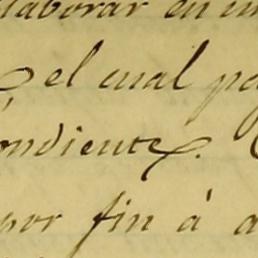 laborar en
el cual pa
ondiente.
por fin á a